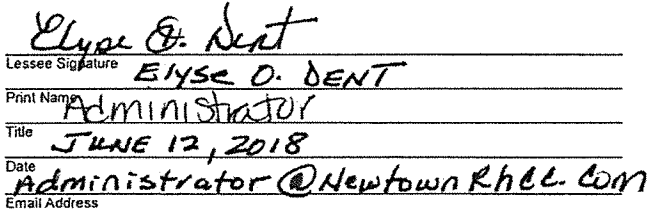 Elyse O. Dent
Lessee Signature
ELYSE O. DENT
Print Name
Administrator
Title
JUNE 12, 2018
Date
Administrator@NewtownRhCC.Com
Email Address